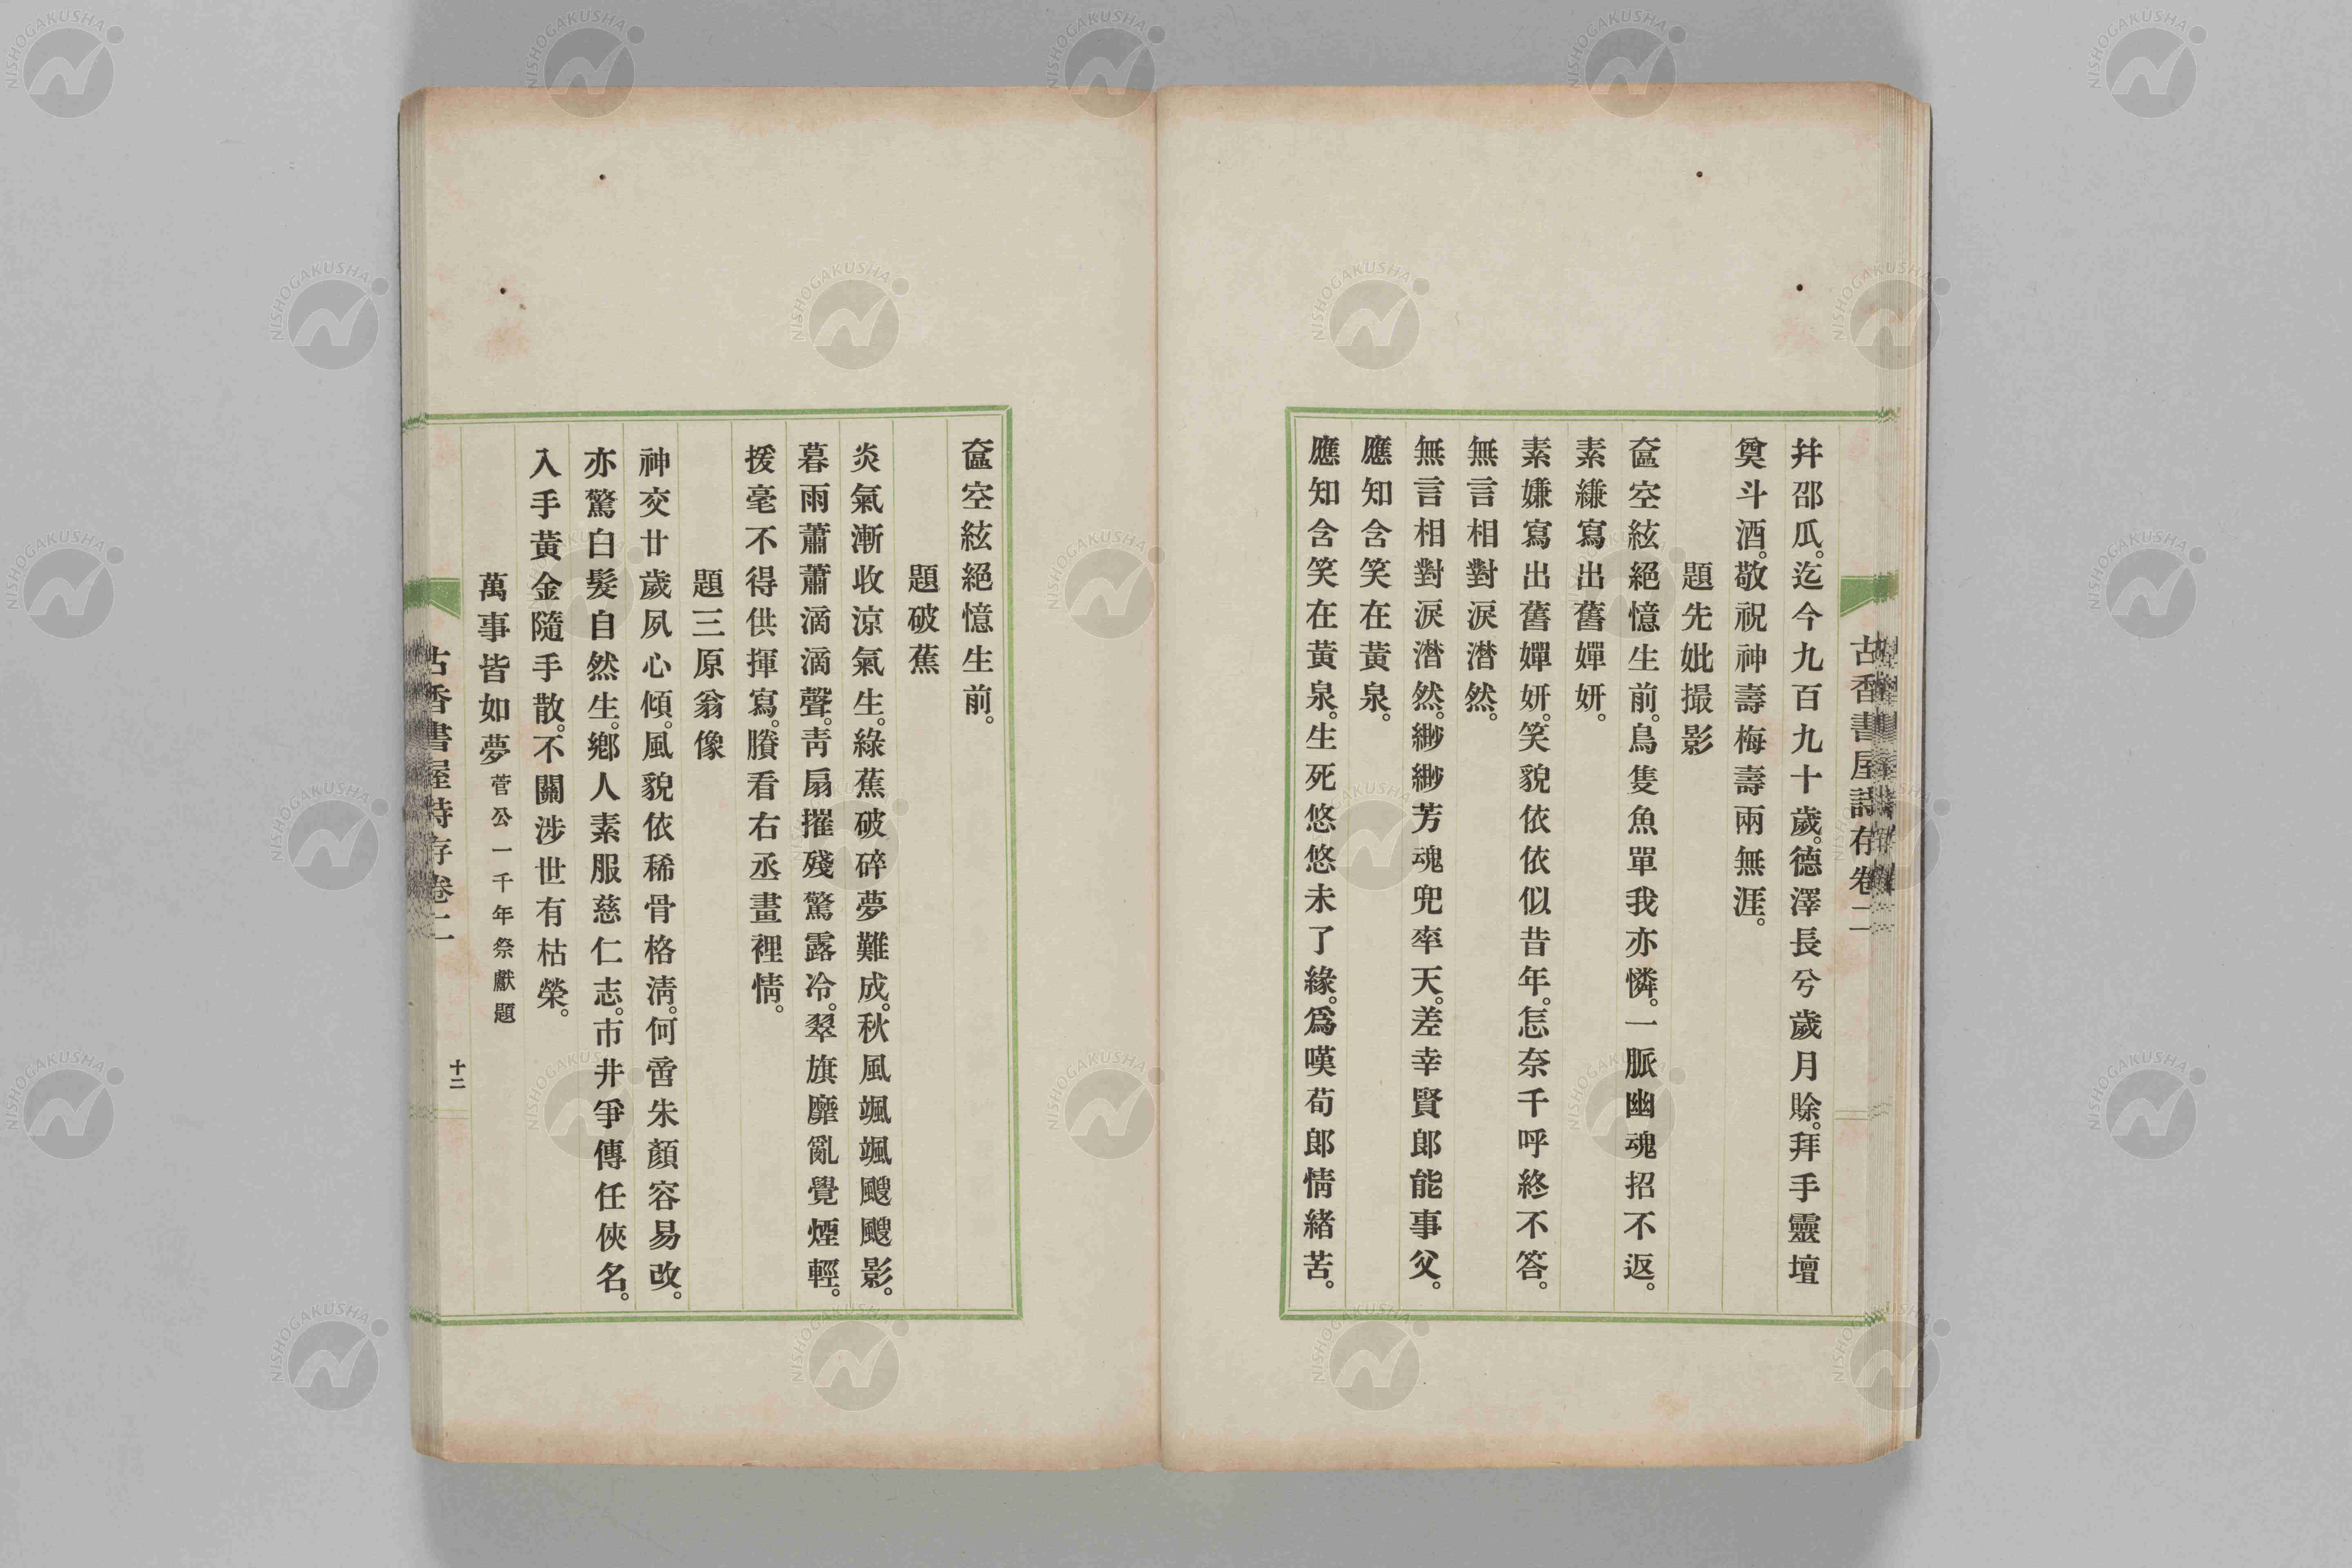 古香書屋詩存卷二
拜邵瓜。迄今九百九十歲。德澤長兮歲月賒。拜手靈壇
奠斗酒。敬祝神壽梅壽兩無涯。
題先妣撮影
奩空絃絕憶生前。鳥隻魚單我亦憐。一脈幽魂招不返。
素縑寫出舊嬋妍。
素嫌寫出舊嬋妍。笑貌依依似昔年。怎奈千呼終不答。
無言相對淚潸然。
無言相對淚潸然。緲緲芳魂兜率天。差幸賢郎能事父。
應知含笑在黃泉。
應知含笑在黃泉。生死悠悠未了緣。爲嘆荀郎情緒苦。
奩空絃絕憶生前。
題破蕉
炎氣漸收涼氣生。綠蕉破碎夢難成。秋風颯颯颼颼影。
暮雨蕭蕭滴滴聲。靑扇摧殘驚露冷。翠旗靡亂覺煙輕。
援毫不得供揮寫。賸看右丞畫裡情。
題三原翁像
神交廿歲夙心傾。風貌依稀骨格淸。何啻朱顏容易改。
亦驚白髮自然生。鄕人素服慈仁志。市井爭傳任俠名。
入手黃金隨手散。不關涉世有枯榮。
萬事皆如夢 菅公一千年祭獻題
古香書屋詩存卷二
十二
NISHOGAKUSHA